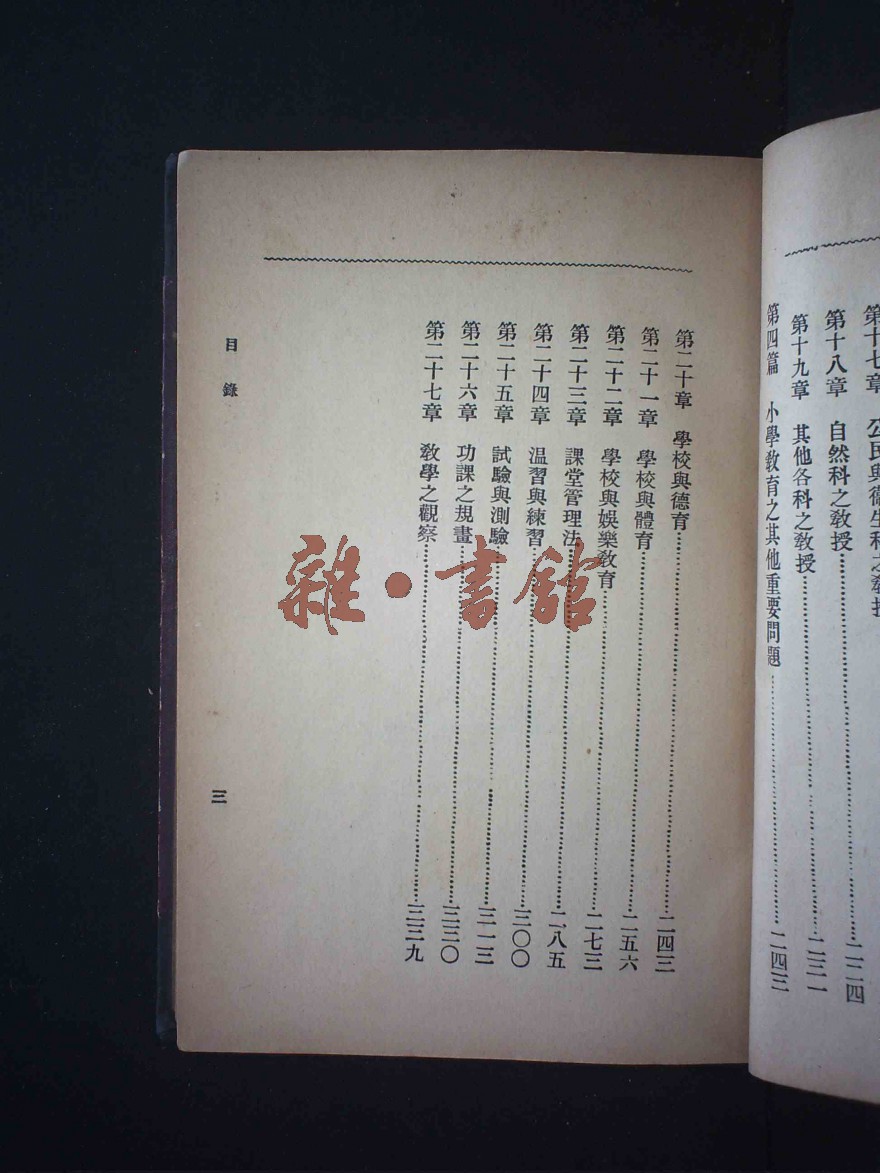 第十七章 公民與衞生科之教授
第十八章 自然科之教授……二二四
第十九章 其他各科之教授……二三一
第四篇 小學教育之其他重要問題……二四三
第二十章 學校與德育……二四三
第二十一章 學校與體育……二五六
第二十二章 學校與娛樂教育……二七三
第二十三章 課堂管理法……二八五
第二十四章 温習與練習……三〇〇
第二十五章 試驗與測驗……三一三
第二十六章 功課之規畫……三三〇
第二十七章 教學之觀察……三三九
目錄
三
雜·書館